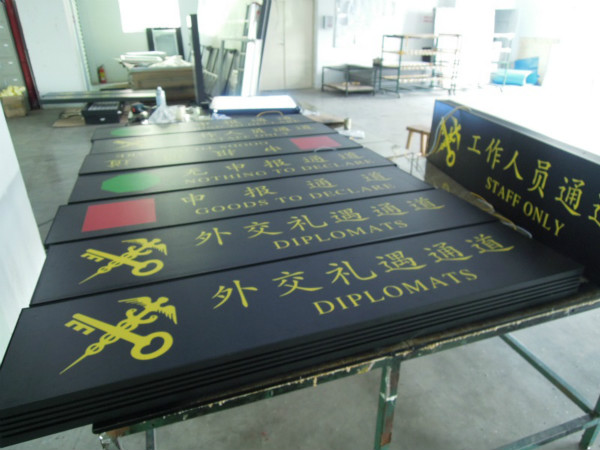 无申报通道
NOTHING TO DECLARE
申报通道
GOODS TO DECLARE
外交礼遇通道
DIPLOMATS
外交礼遇通道
DIPLOMATS
工作人员通道
STAFF ONLY